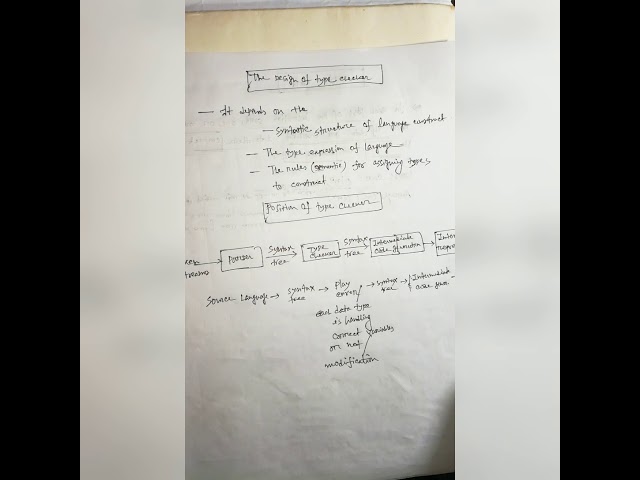 The Design of type checker
— It depends on the
— Syntactic structure of language construct
— The type expression of language
— The rules (semantic) for assigning types
to construct
Position of type checker
Parser → Syntax tree → Type checker → Syntax tree → Intermediate
Source Language → syntax tree → Play error → syntax tree → Intermediate code gen.
each data type
is handling
correct variables
or not
modification